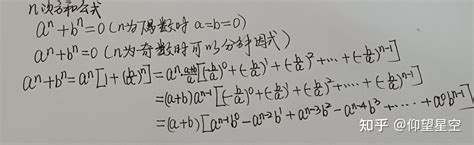 n次方和公式
aⁿ+bⁿ=0 (n为偶数时 a=b=0)
aⁿ+bⁿ=0 (n为奇数时可以分解因式)
aⁿ+bⁿ=aⁿ[1+(b/a)ⁿ]=aⁿ (a+b)/a [(-b/a)⁰+(-b/a)¹+(-b/a)²+…+(-b/a)ⁿ⁻¹]
=(a+b)aⁿ⁻¹[(-b/a)⁰+(-b/a)¹+(-b/a)²+…+(-b/a)ⁿ⁻¹]
=(a+b)[aⁿ⁻¹b⁰-aⁿ⁻²b¹+aⁿ⁻³b²-aⁿ⁻⁴b³+…+a⁰bⁿ⁻¹]
知乎 @仰望星空